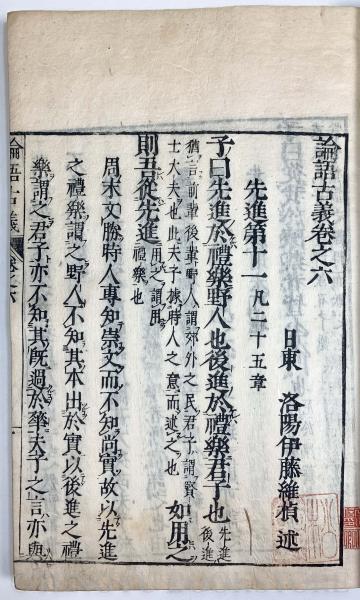 論語古義卷之六
日東　洛陽伊藤維楨　述
先進第十一 凡二十五章
子曰先進於禮樂野人也後進於禮樂君子也 先進後進
猶言前輩後輩野人謂郊外之民君子謂賢
士大夫也此夫子據時人之意而述之也 如用之
則吾從先進 用之謂用禮樂也
周末文勝時人專知崇文而不知尚實故以先進
之禮樂謂之野人不知其本出於實以後進之禮
樂謂之君子亦不知其既過於華夫子之言亦與
論語古義 卷之六